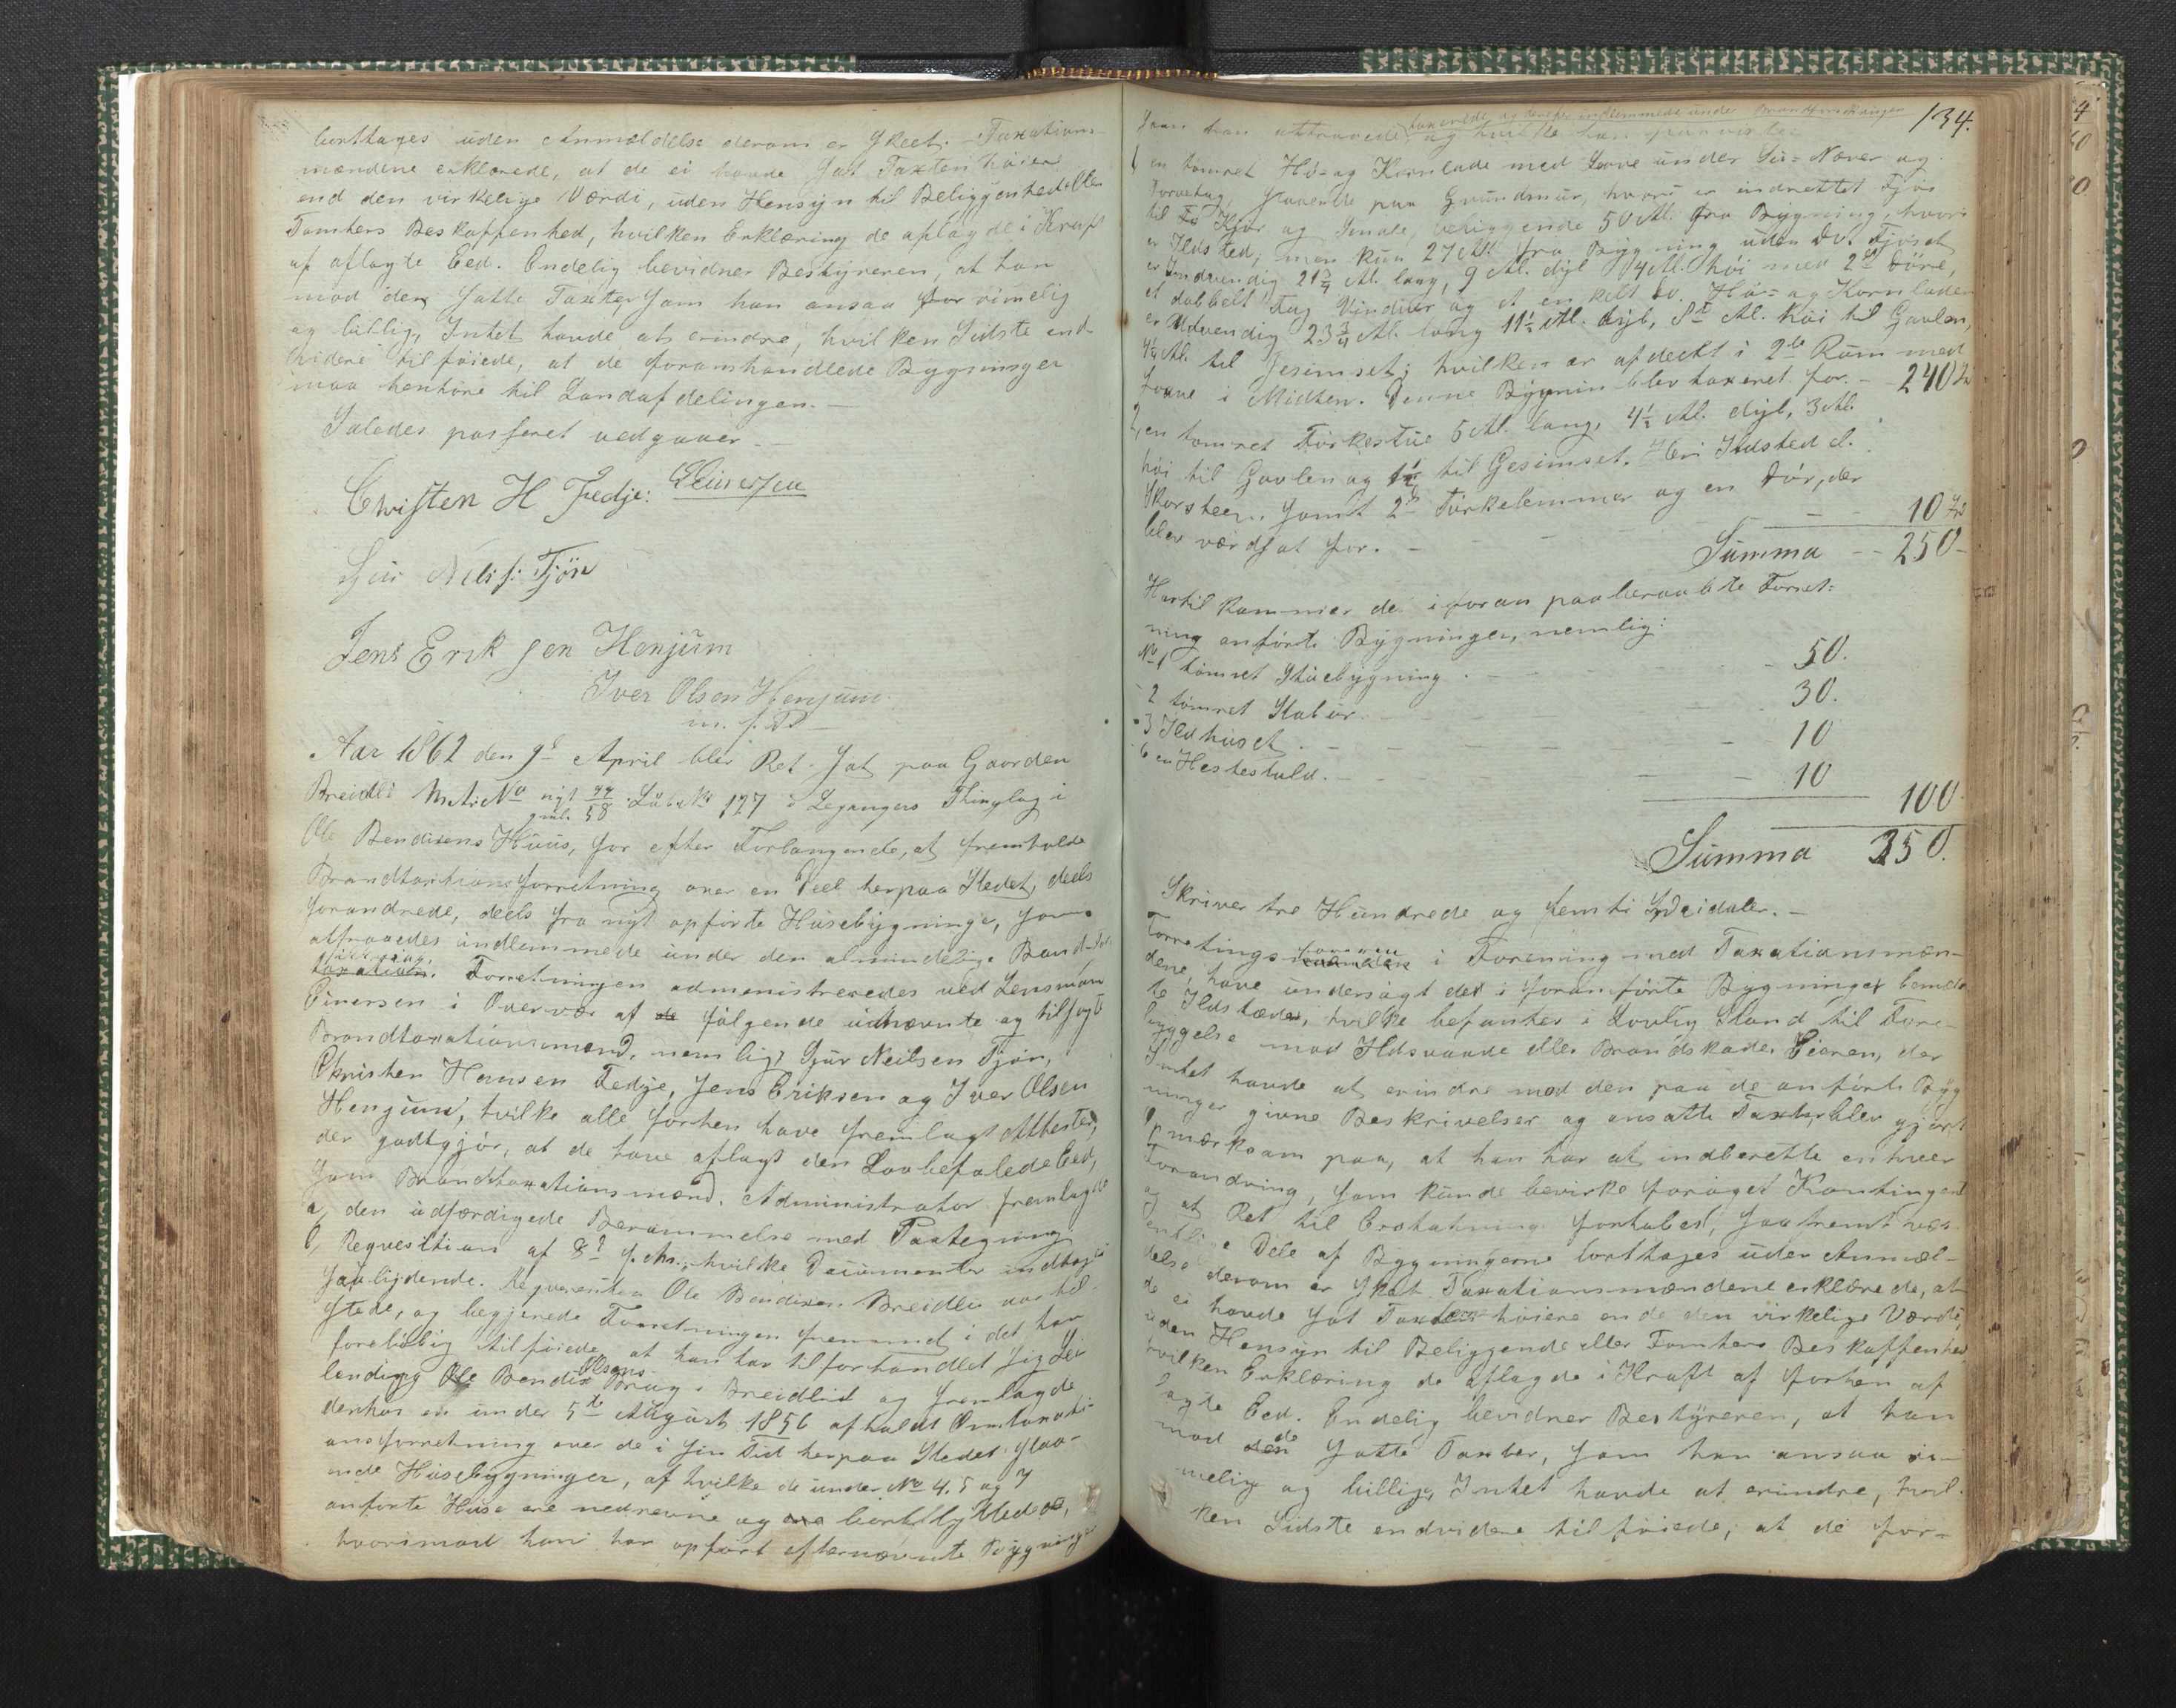 borttages uden Anmeldelse derom er skeet. Taxations-
mændene erklærede, at de ei havde sat Taxten høiere
end den virkelige Værdi, uden Hensyn til Beliggenhed eller
Tomters Beskaffenhed, hvilken Erklæring de aflagde i Kraft
af aflagte Eed. Endelig bevidner Bestyreren, at han
mod den satte Taxter som han ansaa for rimelig
og billig, Intet havde at erindre, hvilken Sidste end-
videre tilføiede, at de foranhandlede Bygninger
maa henhøre til Landafdelingen.
Saledes passeret vedgaaer.
Christen H Fedje: Einersen
Sjur Nilss: Tjøn
Jens Erik sen Henjum
Iver Olsen Henjum
m. f. P.
Aar 1862 den 9de April blev Ret sat paa Gaarden
Breidli Matr No nyt 44 Løbe No 127 i Legangers Thinglag i
gml. 58
Ole Bendixens Huus, for efter Forlangende, at fremholde
Brandtaxtionsforretning over en Deel herpaa Stedet, deels
forandrede, deels fra nyt opførte Husebygninger, som
attraaedes indlemmede under den almindelige Brand-For-
sikring.
taxation. Forretningen administreredes ved Lensmann
Einersen i Overvær af de følgende udnævnte og tilsagte
Brandtaxationsmænd, nemlig: Sjur Neilsen Tjøn,
Christen Hansen Fedje, Jens Eriksen og Iver Olsen
Henjum, hvilke alle forhen have fremlagt Attester,
der godtgjør, at de have aflagt den Lovbefalede Eed,
som Brandtaxationsmænd. Administrator fremlagde
a, den udfærdigede Berammelse med Paategning
b, Requesition af 8d f. M., hvilke Documenter indtages
saalydende. Reqverenten Ole Bendixen Breidli var til-
stede, og begjerede Forretningen fremmed i det han
foreløbig tilføiede at han har tilforhandlet sig
lending Ole Bendix Olsens Brug i Breidlid og fremlagde
derhos en under 5te August 1856 afholdt Omtaxati-
onsforretning over de i sin Tid herpaa Stedet staa-
ende Husebygninger, af hvilke de under No 4, 5 og 7
anførte Huse ere nedrevne og ere bortflyttede,
hvorimod han har opført efternævnte Bygninger
134.
taxerede og derefter indlemmede under Brandforsikringen
som han attraaede og hvilke han paaviste
1 en tømret Hø- og Kornlade med Loove under Su- Næver og
Torvetag, staaende paa Grundmur, hvori er indrettet Fjøs
til Kjør og Smale, beliggende 50 Al. fra Bygning, hvori
er Ildsted, men kun 27 Al. fra Bygning uden Do. Fjøset
er Indvendig 21 3/4 Al. lang, 9 Al. dyb 4 Al. høi med 2de Døre,
et dobbelt Fag Vinduer og et enkelt Do. Hø- og Kornladen
er Udvendig 23 3/4 Al. lang 11 1/2 Al. dyb, 8 Al. høi til Gavlen,
4 1/4 Al. til Gesimset, hvilken er afdeelt i 2de Rum med
Loove i Midten. Denne Bygnin blev taxeret for. - 240
2, en tømret Tørkestue 5 Al. lang, 4 1/2 Al. dyb, 3 Al.
høi til Gavlen og 1 1/2 til Gesimset. Heri Ildsted d.
Skorsteen, samt 2de Tørkelemmer og en Dør, der
blev værdsat for. - - - - 10
Summa -- 250-
Hertil kommer de i foran paaberaabte Forret-
ning anførte Bygninger, nemlig:
No 1 tømret Stuebygning. - - - 50.
- 2 tømret Stabur. - - - 30.
- 3 Ildhuset. - - - 10
- 6 en Hestestald. - - - 10
100.
Summa 350.
Skriver tre Hundrede og femti Spesidaler. -
Forretings i Forening med Taxationsmæn-
dene, have undersøgt det i foranførte Bygninger benæv-
te Ildstæder, hvilke befantes i Lovlig Stand til Fore-
byggelse mod Ildsvaade eller Brandskade. Eieren, der
Intet havde at erindre mod den paa de anførte Byg-
ninger givne Beskrivelser og ansatte Taxter, blev gjort
opmærksom paa, at han har at indberette enhver
Forandring, som kunde bevirke forøget Kontingent
og at Ret til Erstatning fortabes, saafremt væs-
entlige Dele af Bygningerne borttages uden Anmel-
delse derom er skeet. Taxationsmændene erklærede, at
de ei havde sat Taxten høiere ende den virkelige Værdi,
uden Hensyn til Beliggende eller Tomters Beskaffenhed
hvilken Erklæring de aflagde i Kraft af forhen af
lagte Eed. Endelig bevidner Bestyreren, at han
mod de satte Taxter, som han ansaa ri-
melige og billige, Intet havde at erindre, hvil-
ken Sidste endvidere tilføiede, at de for-